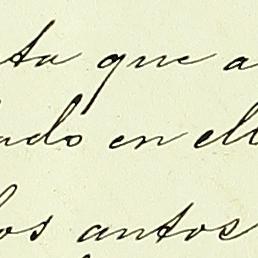 ta que a
ado en ell
los antos